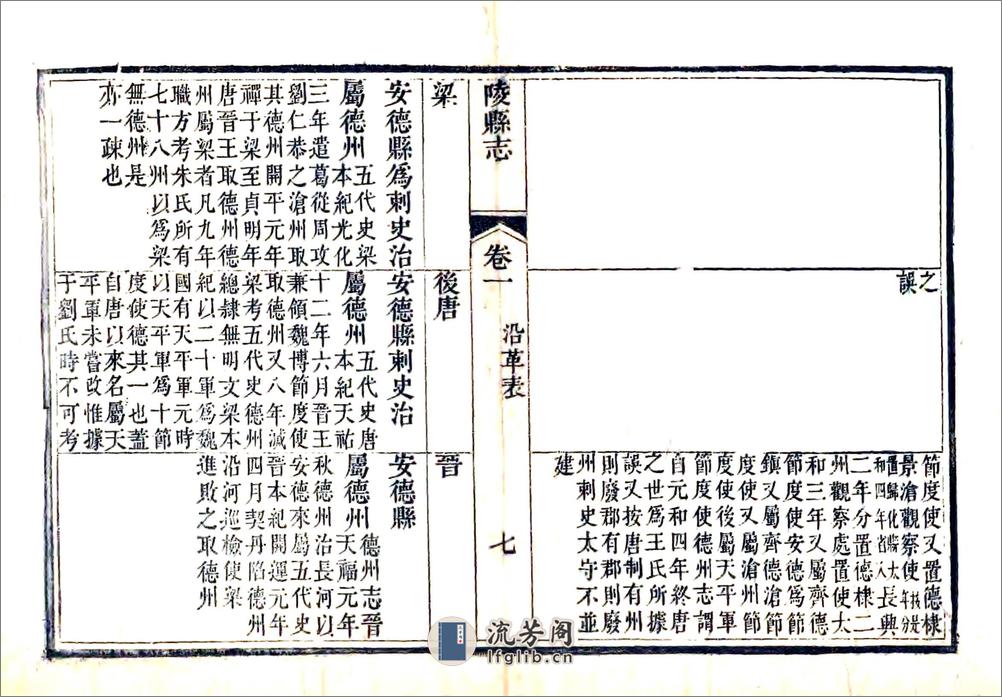 之
誤
節度使又置德棣
景滄觀察使
置歸化縣太
和四年省入長典
二年分置德棣二
州觀察處置使太
和三年又屬齊德
節度使安德爲節
鎮又屬齊德滄節
度使又屬滄州節
度使後屬天平軍
節度使德州志謂
自元和四年終唐
之世爲王氏所據
誤又按唐制有州
則廢郡有郡則廢
州刺史太守不並
建
陵縣志
卷一
沿革表
七
梁
安德縣爲刺史治
屬德州五代史梁
本紀光化
三年遣葛從周攻
劉仁恭之滄州取
其德州開平元年
禪于梁至貞明年
唐晉王取德州德
州屬梁者凡九年
職方考朱氏所有
七十八州以爲梁
無德州是
亦一疎也
後唐
安德縣刺史治
屬德州五代史唐
本紀天祐
十二年六月晉王
兼領魏博節度使
取德州又八年滅
梁考五代史德州
總隸無明文梁本
紀以二十軍爲魏
國有天平軍元時
以天平軍爲十節
度使德其一也蓋
自唐以來名屬天
平軍未嘗改惟據
于劉氏時不可考
晉
安德縣
屬德州德州志晉
天福元年
秋德州治長河以
安德來屬五代史
晉本紀開運元年
四月契丹陷德州
沿河巡檢使梁
進敗之取德州
流芳阁
lfglib.cn